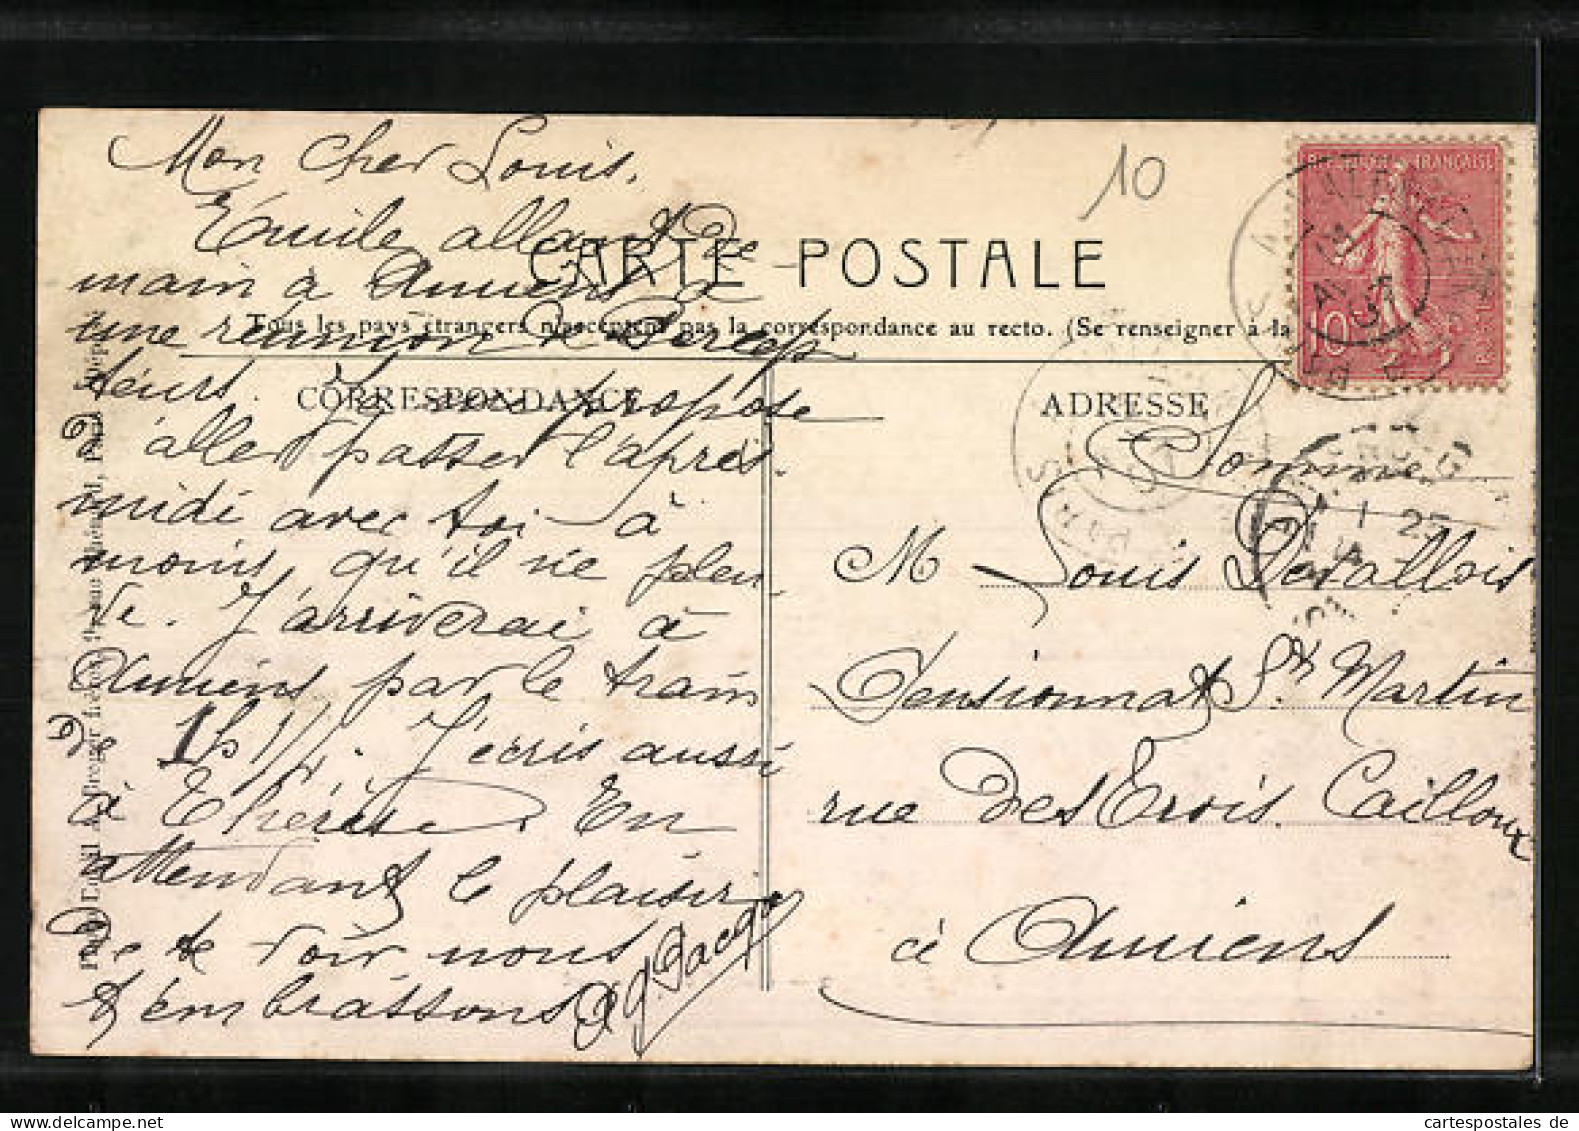 Mon cher Louis,
Emile allant de
main à Amiens à
une réunion de Percep
teurs. Je me propose
d'aller passer l'après.
midi avec toi à
moins qu'il ne pleu
ve. J'arriverai à
Amiens par le train
de 1h 1/2. J'écris aussi
à Thérèse. En
attendant le plaisir
de te voir nous
t'embrassons
10
CARTE POSTALE
Tous les pays étrangers n'acceptent pas la correspondance au recto. (Se renseigner à la
CORRESPONDANCE
ADRESSE
FRANÇAISE
10
Somme
M Louis Devallois
Pensionnat St. Martin
rue des Trois Cailloux
à Amiens
PARIS
cartespostales de